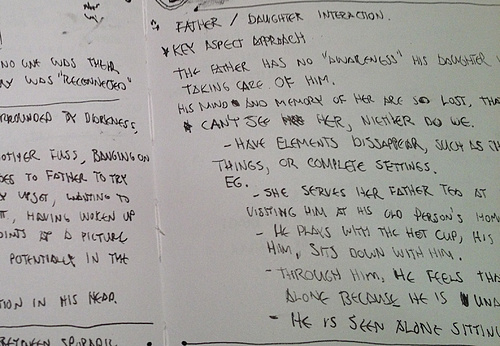 NOT
NO ONE WAS THEIR
WAS "RECONNECTED"
SURROUNDED BY DARKNESS,
MOTHER FUSS, BANGING ON
GOES TO FATHER TO TRY
UPSET, WANTING TO
IT, HAVING WOKEN UP
POINTS AT A PICTURE
POTENTIALLY IN THE
TION IN HIS HEAD.
BETWEEN SPORADIC
FATHER / DAUGHTER INTERACTION.
* KEY ASPECT APPROACH
THE FATHER HAS NO "AWARENESS" HIS DAUGHTER
TAKING CARE OF HIM.
HIS MIND AND MEMORY OF HER ARE SO LOST, THA
* CAN'T SEE HER, NIETHER DO WE.
- HAVE ELEMENTS DISSAPPEAR, SUCH AS TH
THINGS, OR COMPLETE SETTINGS.
EG.
- SHE SERVES HER FATHER TEA AT
VISITING HIM AT HIS OLD PERSON'S HOM
- HE PLAYS WITH THE HOT CUP, HIS
HIM, SITS DOWN WITH HIM.
- THROUGH HIM, HE FEELS THA
ALONE BECAUSE HE IS UNA
- HE IS SEEN ALONE SITTIN